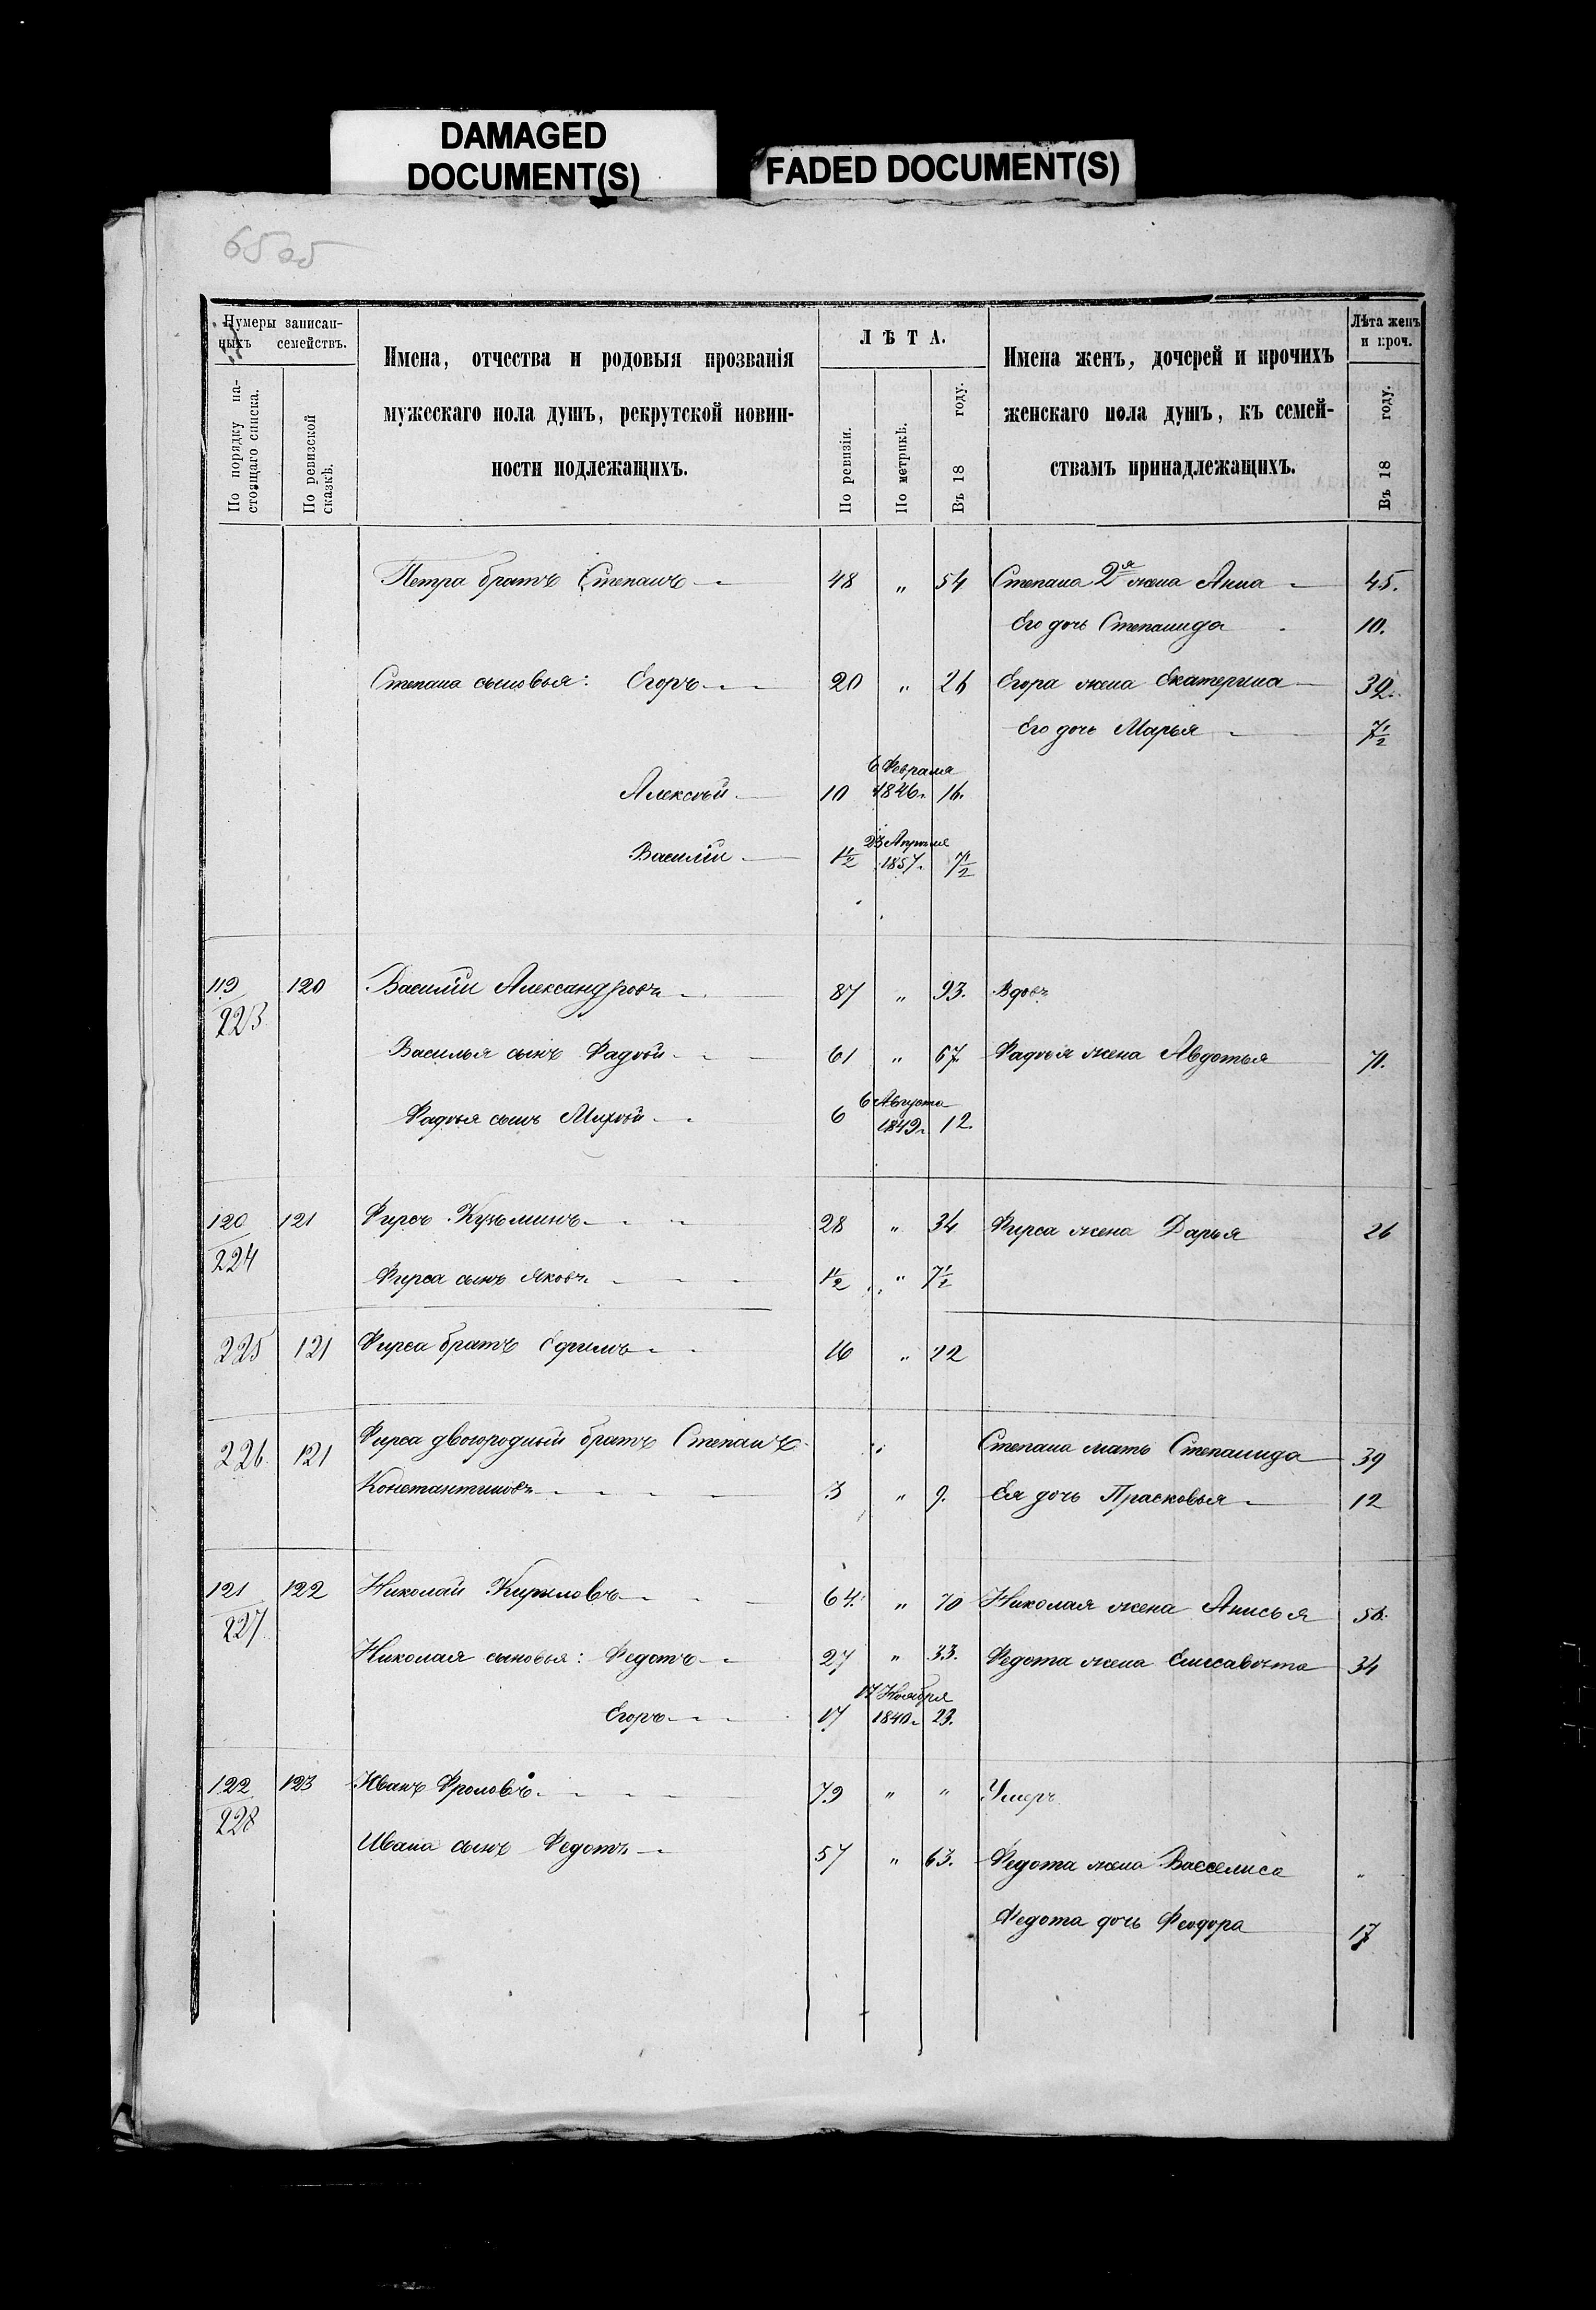 DAMAGED
DOCUMENT(S)
FADED DOCUMENT(S)
65
Нумеры записан-
ныхъ семействъ.
По порядку на-
стоящаго списка.
По ревизской
сказкѣ.
Имена, отчества и родовыя прозванія
мужескаго пола душъ, рекрутской повин-
ности подлежащихъ.
ЛѢТА.
По ревизіи.
По метрикѣ.
Въ 18 году.
Имена женъ, дочерей и прочихъ
женскаго пола душъ, къ семей-
ствамъ принадлежащихъ.
Лѣта женъ
и проч.
Въ 18 году.
Петра братъ Степанъ 48 " 54 Степана 2я жена Анна 45.
Его дочь Степанида 10.
Степана сыновья: Егоръ 20 " 26 Егора жена Екатерина 32.
Его дочь Марья 7½
6 Февраля
Алексѣй 10 1846г. 16.
23 Апреля
Василiй 1½ 1857г. 7½
119 120 Василiй Александровъ 87 " 93. Вдовъ
223
Василья сынъ Фадѣй 61 " 67. Фадѣя жена Авдотья 71.
6 Августа
Фадѣя сынъ Михѣй 6 1849г. 12.
120 121 Фирсъ Кузьминъ 28 " 34 Фирса жена Дарья 26
224
Фирса сынъ Яковъ 1½ " 7½
225 121 Фирса братъ Ефимъ 16 " 22
226 121 Фирса двоюродный братъ Степанъ Степана мать Степанида 39
Константиновъ 3 " 9. Ея дочь Прасковья 12
121 122 Николай Кириловъ 64. " 70 Николая жена Анисья 56.
227
Николая сыновья: Федотъ 27 " 33. Федота жена Елисавѣта 34
17 Ноября
Егоръ 17 1840г. 23.
122 123 Иванъ Фроловъ 79 " " Умеръ
228
Ивана сынъ Федотъ 57 " 63. Федота жена Васселиса "
Федота дочь Феодора 17